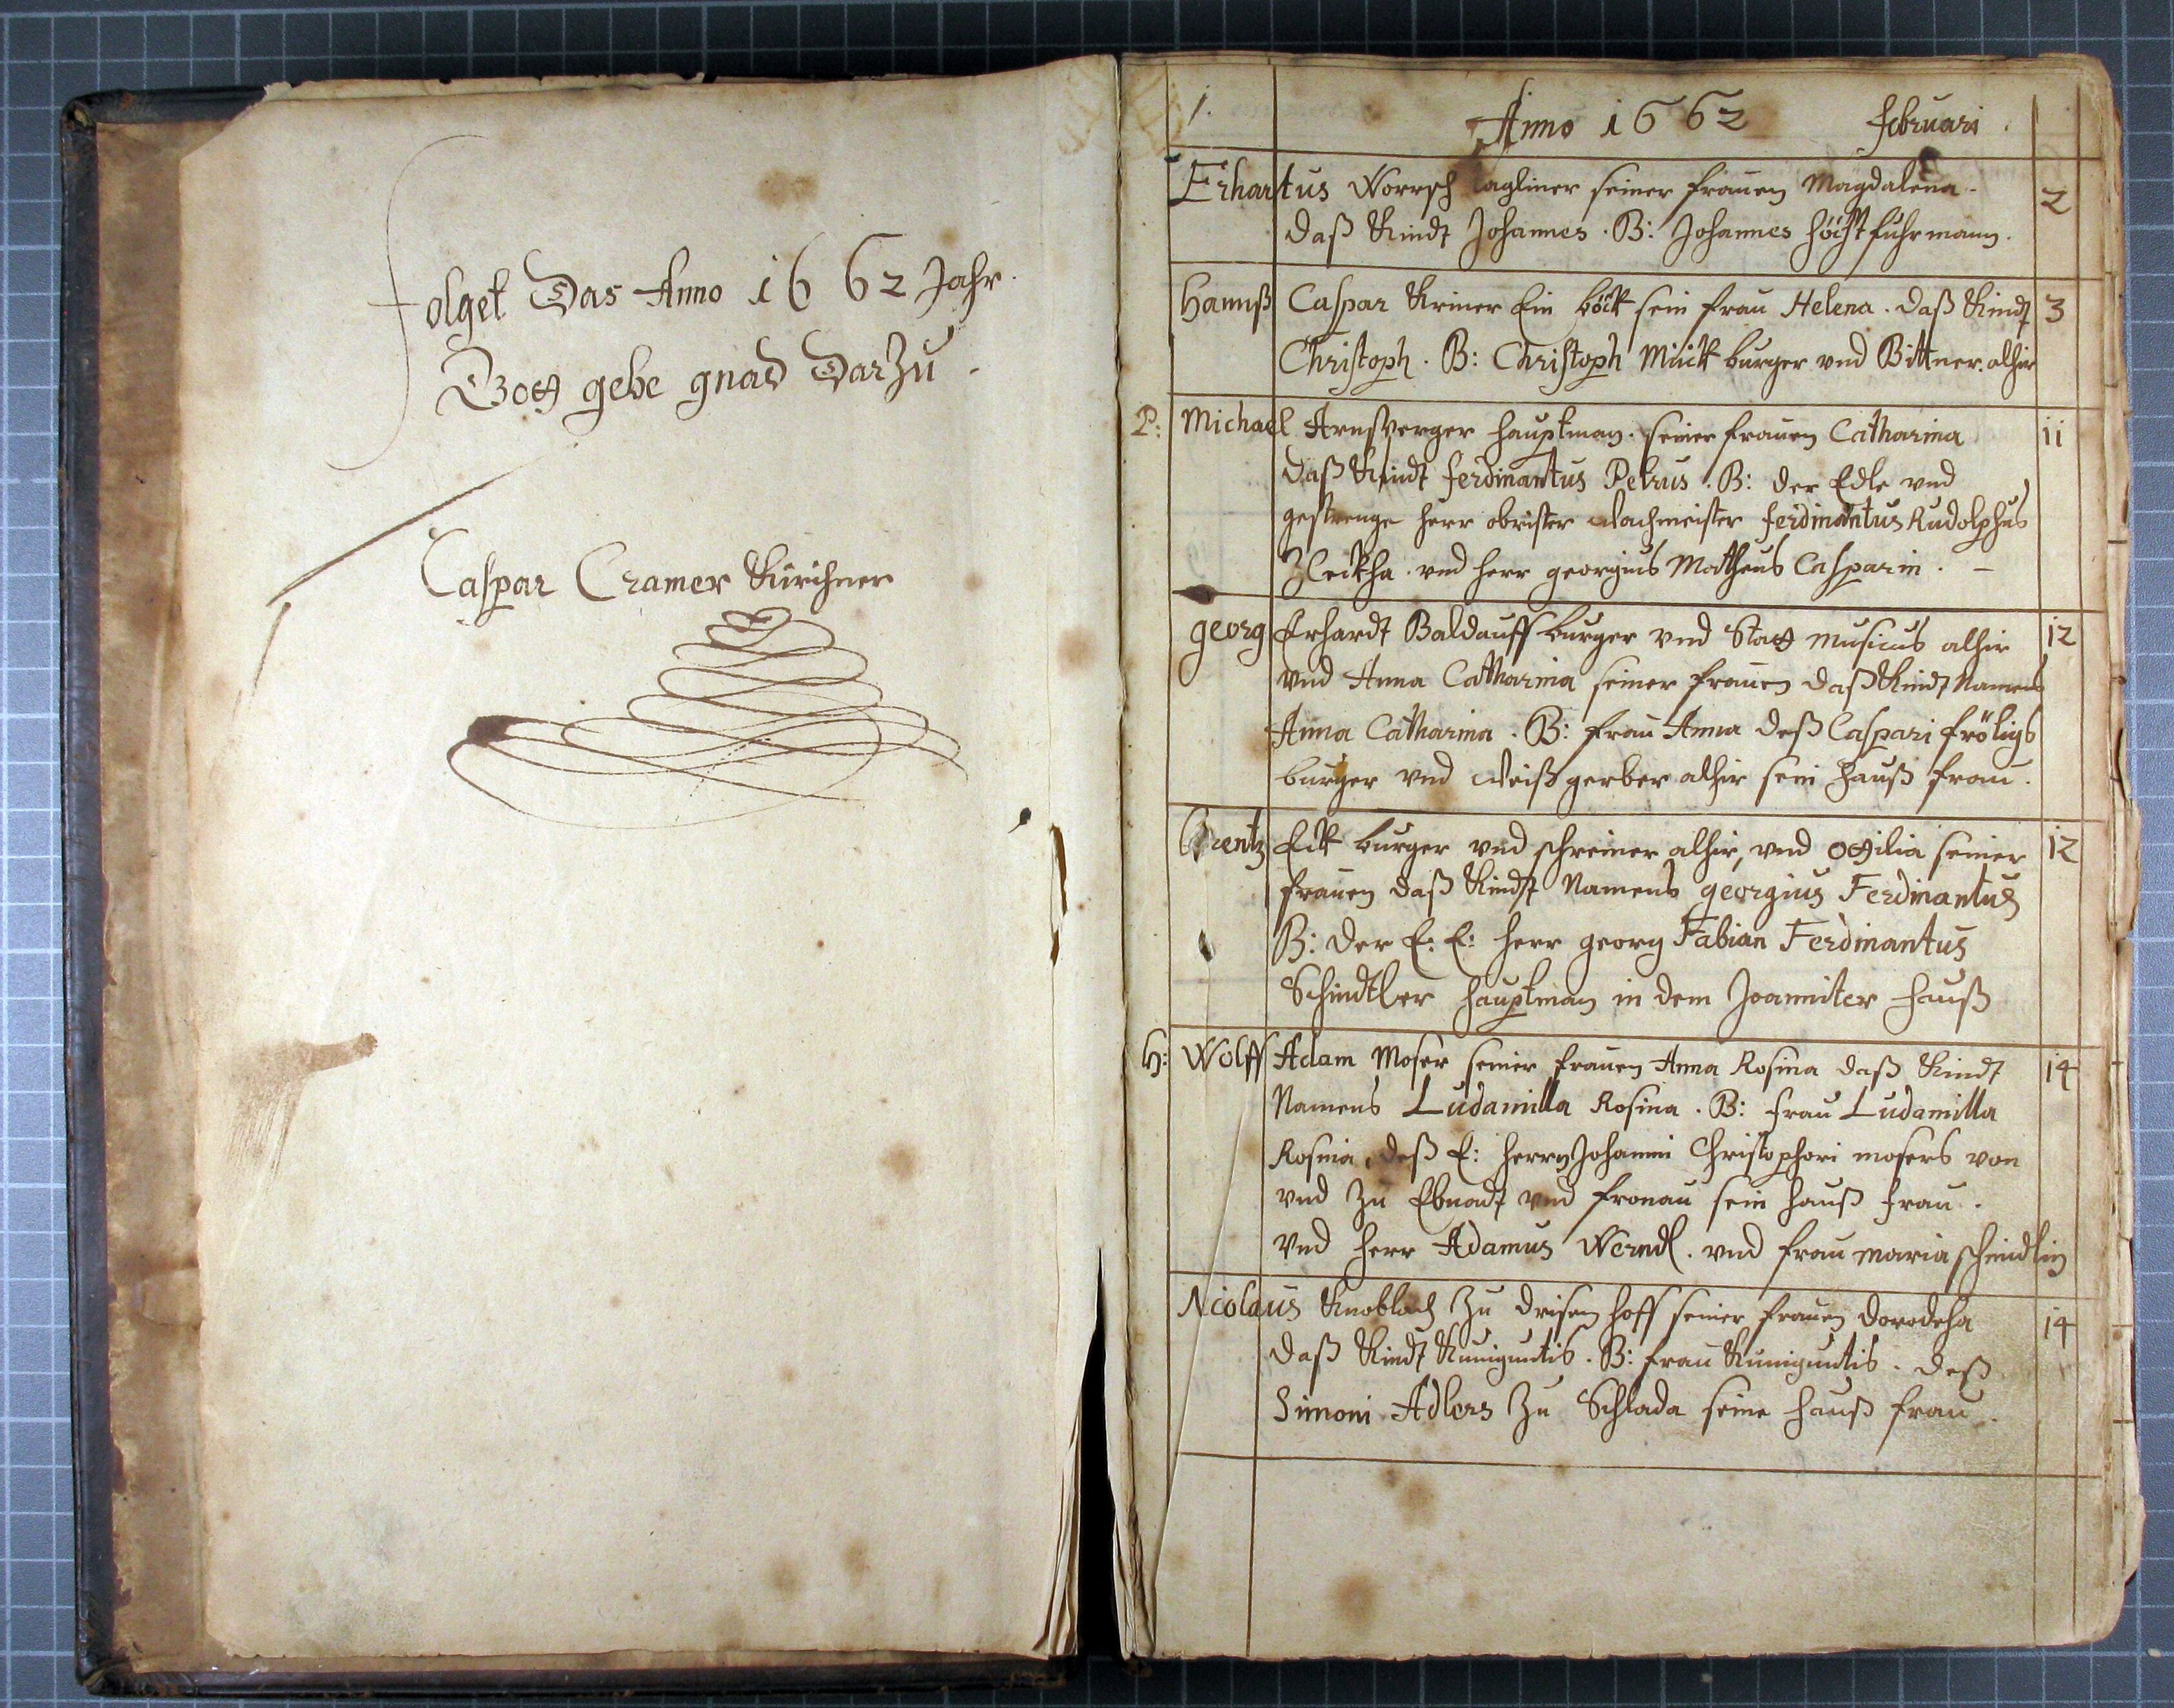 Folget Das Anno 1662 Jahr.
Gott gebe gnad Darzu.
Caspar Cramer Kirchner
1. Anno 1662 februari.
Erhartus Worrsch tagliner seiner frauen Magdalena. 2
daß Kindt Johannes. B: Johannes höchst fuhrmann.
Hannß Caspar Kriner Ein böck sein frau Helena. daß Kindt 3
Christoph. B: Christoph Mück burger vnd Bittner alhir
P: Michael Arnsverger hauptman. seiner frauen Catharina 11
daß Kindt ferdinantus Petrus. B: der Edle vnd
gestrenge herr obrister wachmeister ferdinantus Rudolphus
vnd herr georgius Matheus Casparin. –
georg Erhardt Baldauff burger vnd Statt musicus alhir 12
vnd Anna Catharina seiner frauen daß Kindt Namens
Anna Catharina. B: frau Anna deß Caspari fröligs
burger vnd weißgerber alhir sein hauß frau.
Lorentz Eck burger vnd schreiner alhir, vnd ottilia seiner 12
frauen daß Kindt Namens georgius Ferdinantus
B: der E: E: herr georg Fabian Ferdinantus
Schindtler hauptman in dem Joanniter hauß
H: Wolff Adam Moser seiner frauen Anna Rosina daß Kindt 14
Namens Ludamilla Rosina. B: frau Ludamilla
Rosina, deß E: herrn Johanni Christophori mosers von
vnd zu Ebnadt vnd fronau sein hauß frau.
Vnd herr Adamus Werndl. vnd frau maria scheindlin
Nicolaus Knobloch zu drisenhoff seiner frauen dorodeha 14
daß Kindt Kunigundis. B: frau Kunigundis. deß
Simoni Adlers zu Schlada seine hauß frau.